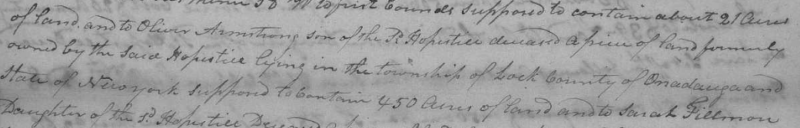 to first bounds supposed to contain about 21 Acres
of land and to Oliver Armstrong son of the Sd. Hopestill deceased a piece of land formerly
owned by the said Hopestill lying in the township of Lock County of Onadauga and
State of New york supposed to Contain 450 Acres of land and to Sarah Fillmon
Daughter of the Sd. Hopestill Deceased